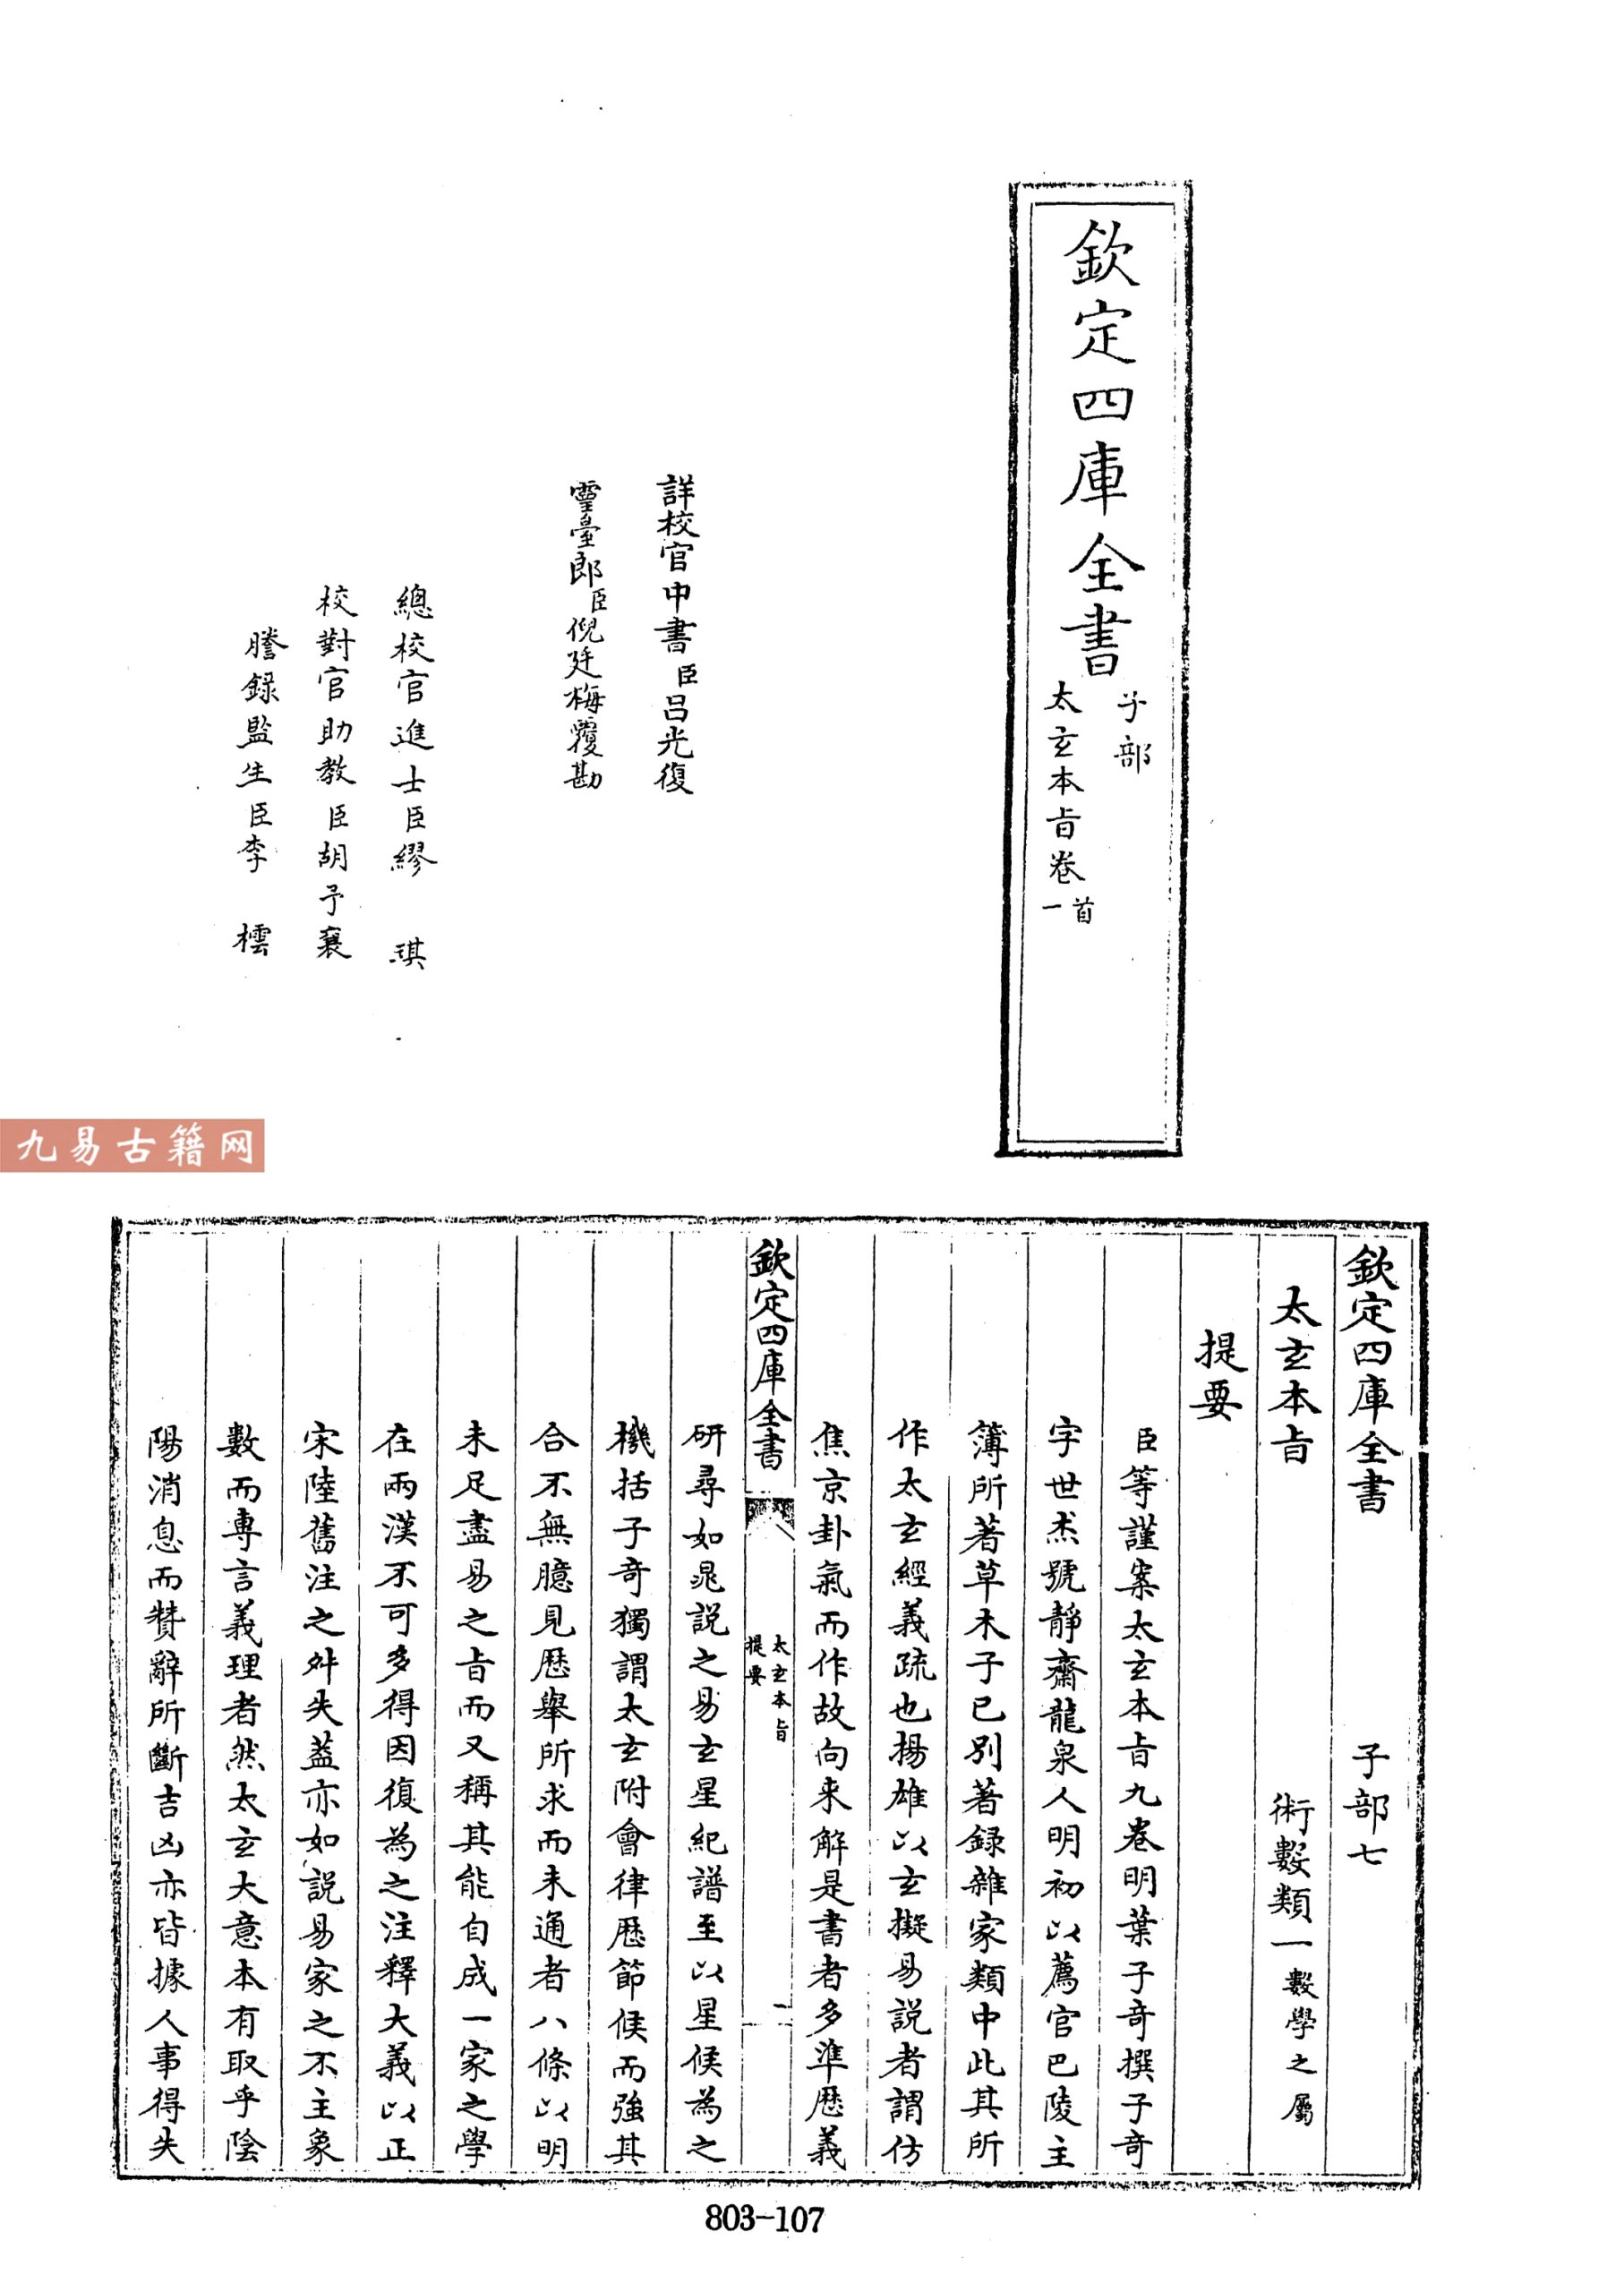 欽定四庫全書
子部
太玄本旨卷首一
詳校官中書臣吕光復
靈臺郎臣倪廷梅覆勘
總校官進士臣繆琪
校對官助教臣胡予襄
謄録監生臣李橒
九易古籍网
欽定四庫全書 子部七
太玄本旨 術數類一數學之屬
提要
臣等謹案太玄本旨九卷明葉子奇撰子奇
字世杰號靜齋龍泉人明初以薦官巴陵主
簿所著草木子已別著録雜家類中此其所
作太玄經義疏也揚雄以玄擬易説者謂仿
焦京卦氣而作故向来解是書者多準厯義
欽定四庫全書 太玄本旨提要 一
研尋如晁説之易玄星紀譜至以星候為之
機括子奇獨謂太玄附會律厯節候而強其
合不無臆見厯舉所求而未通者八條以明
未足盡易之旨而又稱其能自成一家之學
在兩漢不可多得因復為之注釋大義以正
宋陸舊注之舛失葢亦如説易家之不主象
數而專言義理者然太玄大意本有取乎陰
陽消息而贊辭所斷吉凶亦皆據人事得失
803-107